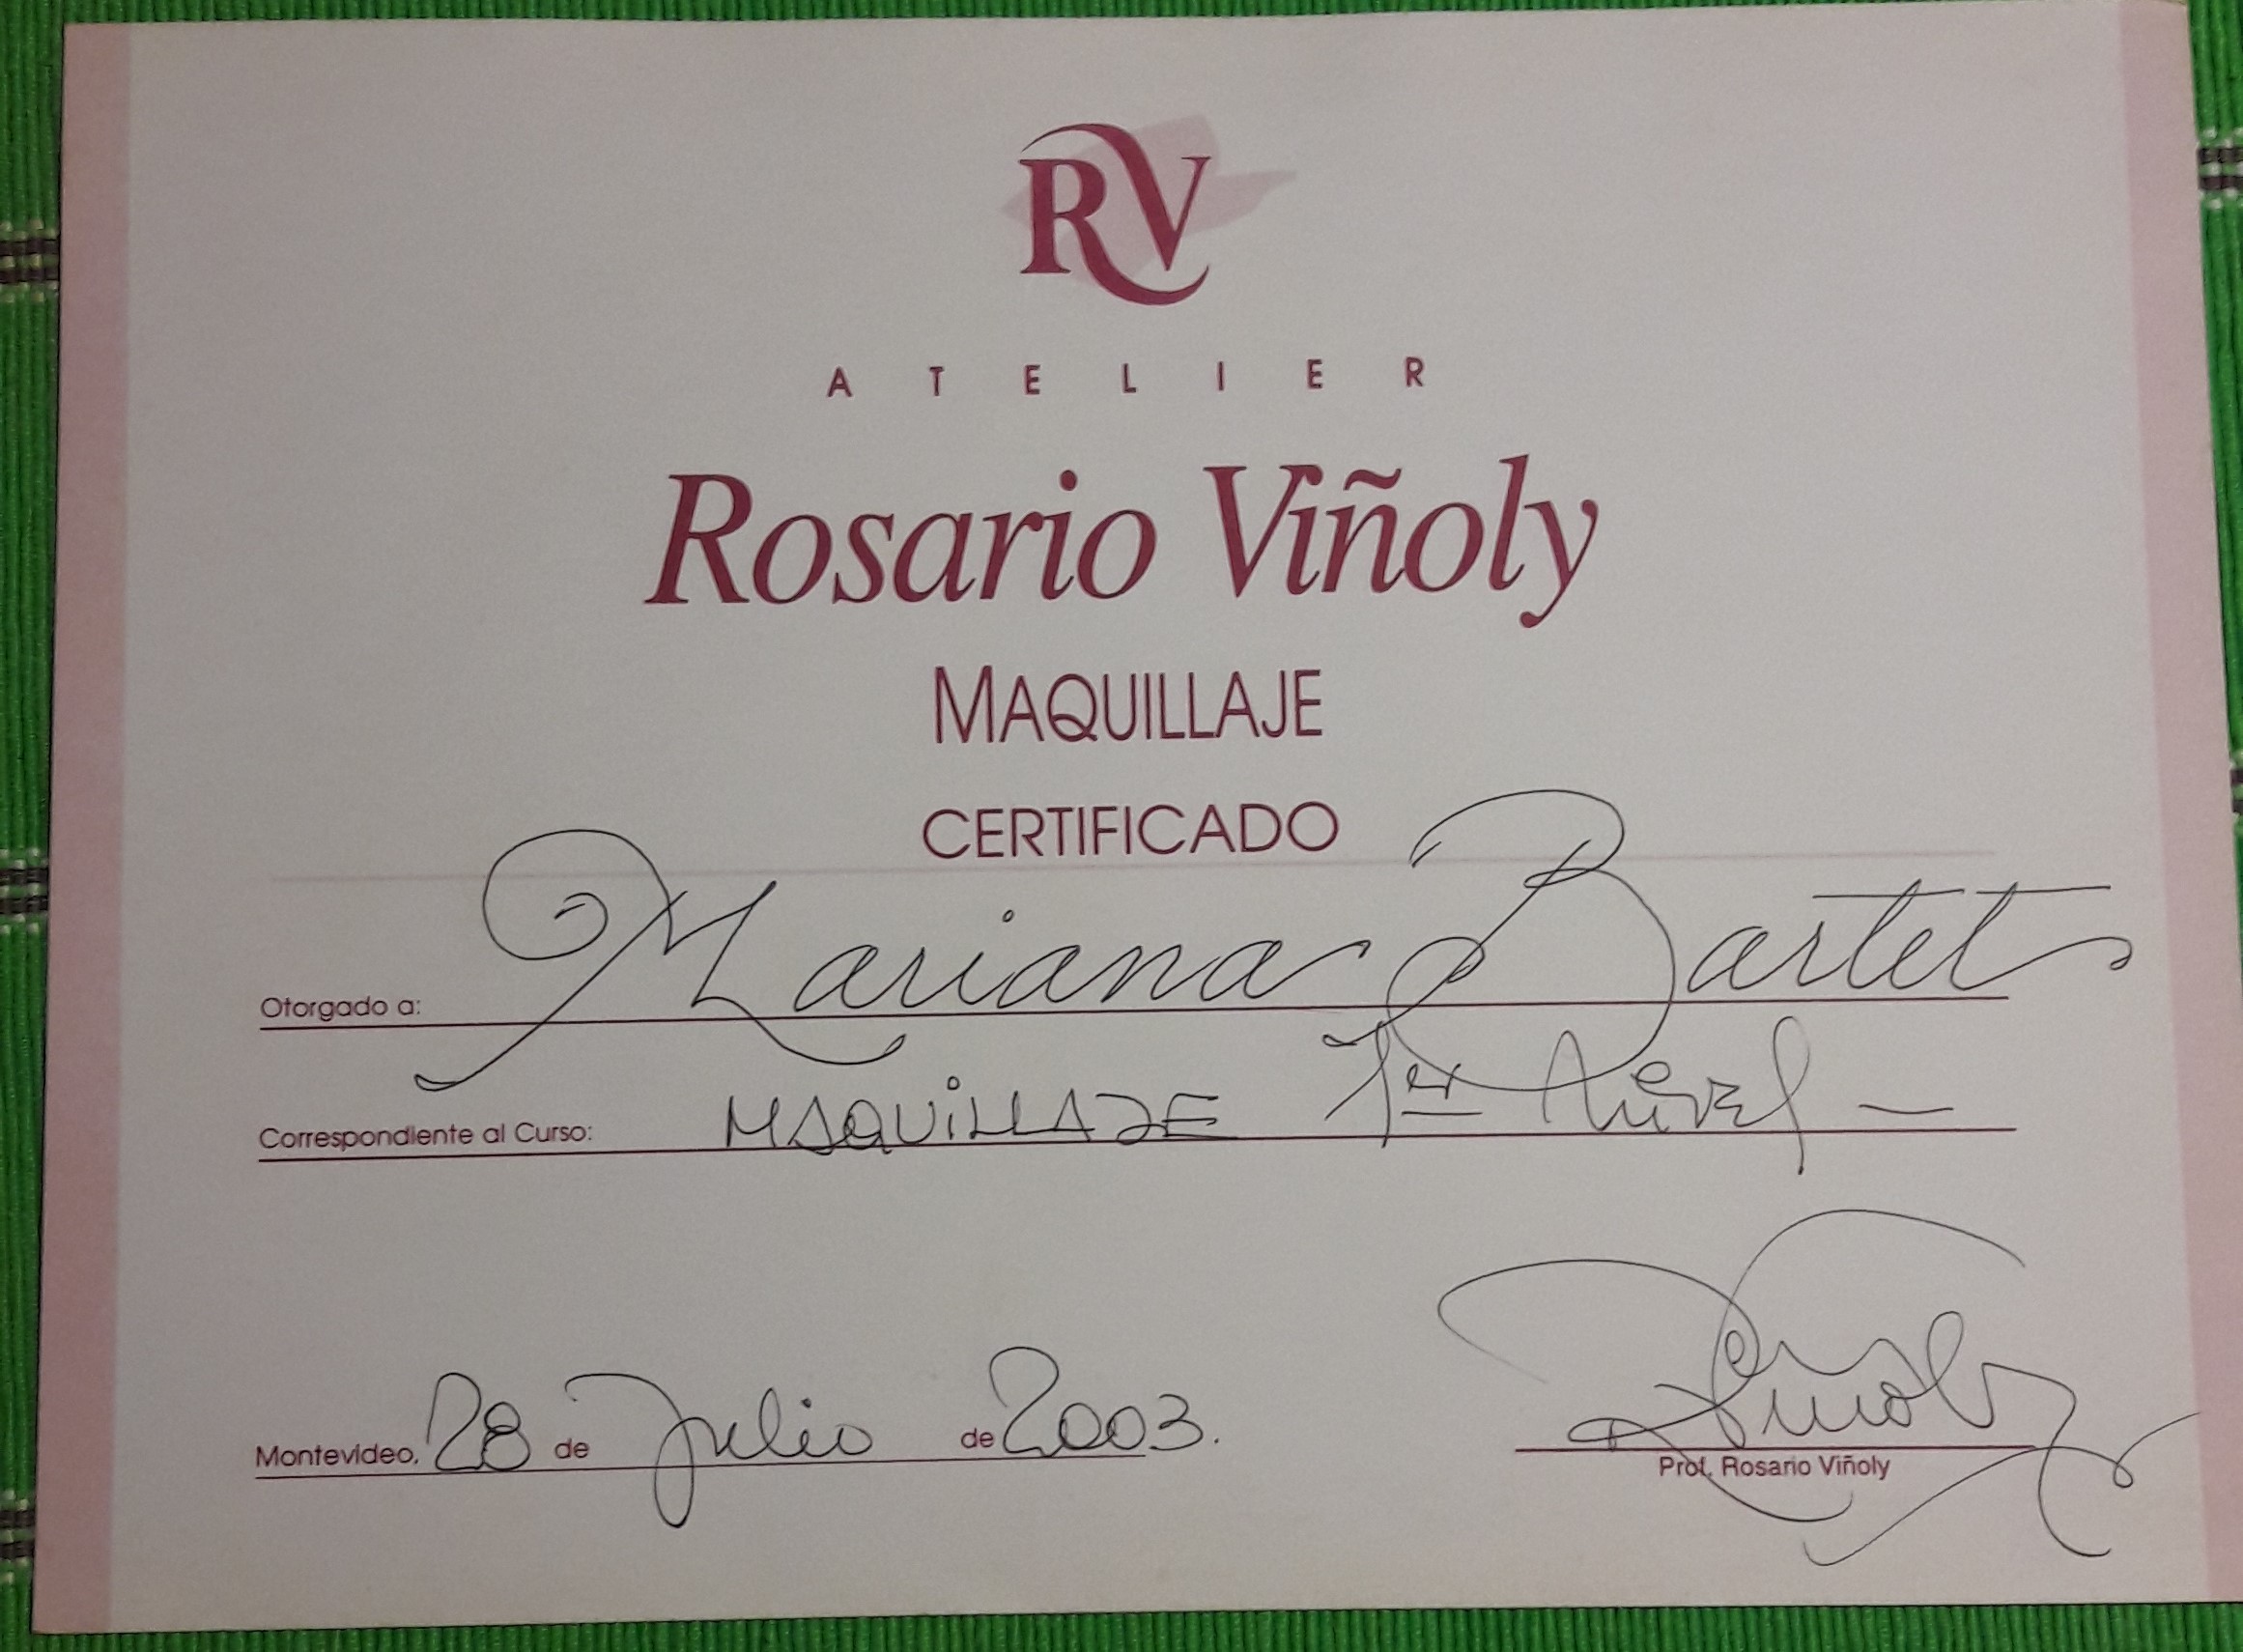 RV
ATELIER
Rosario Viñoly
MAQUILLAJE
CERTIFICADO
Otorgado a: Mariana Bartet
Correspondiente al Curso: MAQUILLAJE 1er Nivel —
Montevideo, 28 de Julio de 2003.
Prof. Rosario Viñoly